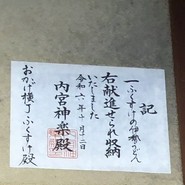 記
一ふくすけの伊勢うどん
右献進せられ収納
いたしました
令和六年十月二日
内宮神楽殿
おかげ横丁ふくすけ殿